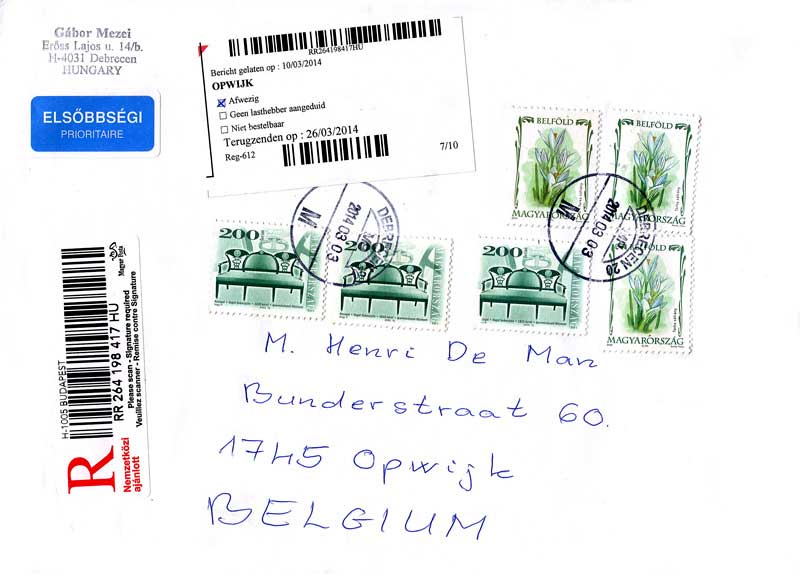 Gábor Mezei
Erőss Lajos u. 14/b.
H-4031 Debrecen
HUNGARY
ELSŐBBSÉGI
PRIORITAIRE
RR264198417HU
Bericht gelaten op : 10/03/2014
OPWIJK
Afwezig
Geen lasthebber aangeduid
Niet bestelbaar
Terugzenden op : 26/03/2014
Reg-612
7/10
BELFÖLD
MAGYARORSZÁG
BELFÖLD
MAGYARORSZÁG
BELFÖLD
MAGYARORSZÁG
200
200
200
DEBRECEN
2014 03 03
M
DEBRECEN 20
2014 03 03
M
H-1005 BUDAPEST
RR 264 198 417 HU
Please scan - Signature required
Veuillez scanner - Remise contre Signature
Magyar Posta
R
Nemzetközi
ajánlott
M. Henri De Man
Bunderstraat 60.
1745 Opwijk
BELGIUM